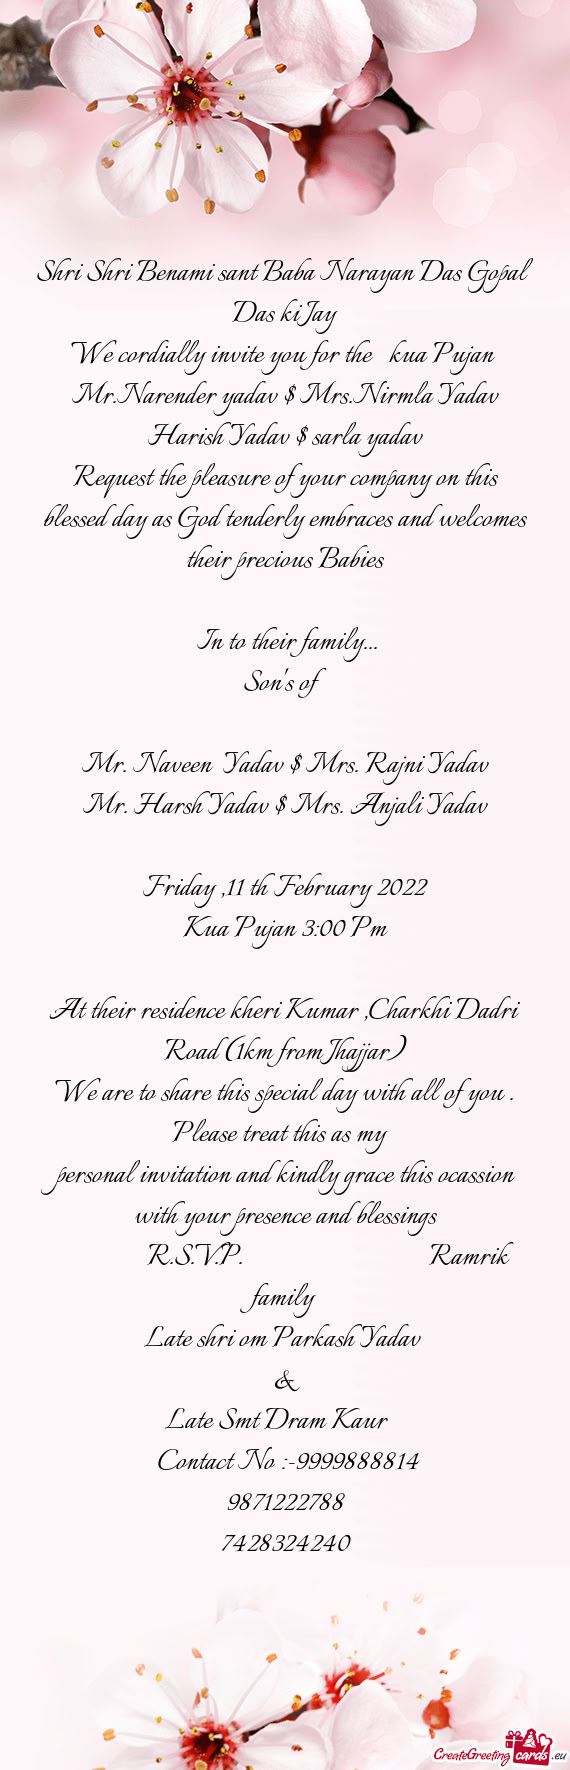 Shri Shri Benami sant Baba Narayan Das Gopal
Das ki Jay
We cordially invite you for the kua Pujan
Mr.Narender yadav $ Mrs.Nirmla Yadav
Harish Yadav $ sarla yadav
Request the pleasure of your company on this
blessed day as God tenderly embraces and welcomes
their precious Babies
In to their family...
Son's of
Mr. Naveen Yadav $ Mrs. Rajni Yadav
Mr. Harsh Yadav $ Mrs. Anjali Yadav
Friday ,11 th February 2022
Kua Pujan 3:00 Pm
At their residence kheri Kumar ,Charkhi Dadri
Road (1km from Jhajjar)
We are to share this special day with all of you .
Please treat this as my
personal invitation and kindly grace this ocassion
with your presence and blessings
R.S.V.P. Ramrik
family
Late shri om Parkash Yadav
&
Late Smt Dram Kaur
Contact No :-9999888814
9871222788
7428324240
CreateGreetingcards.eu